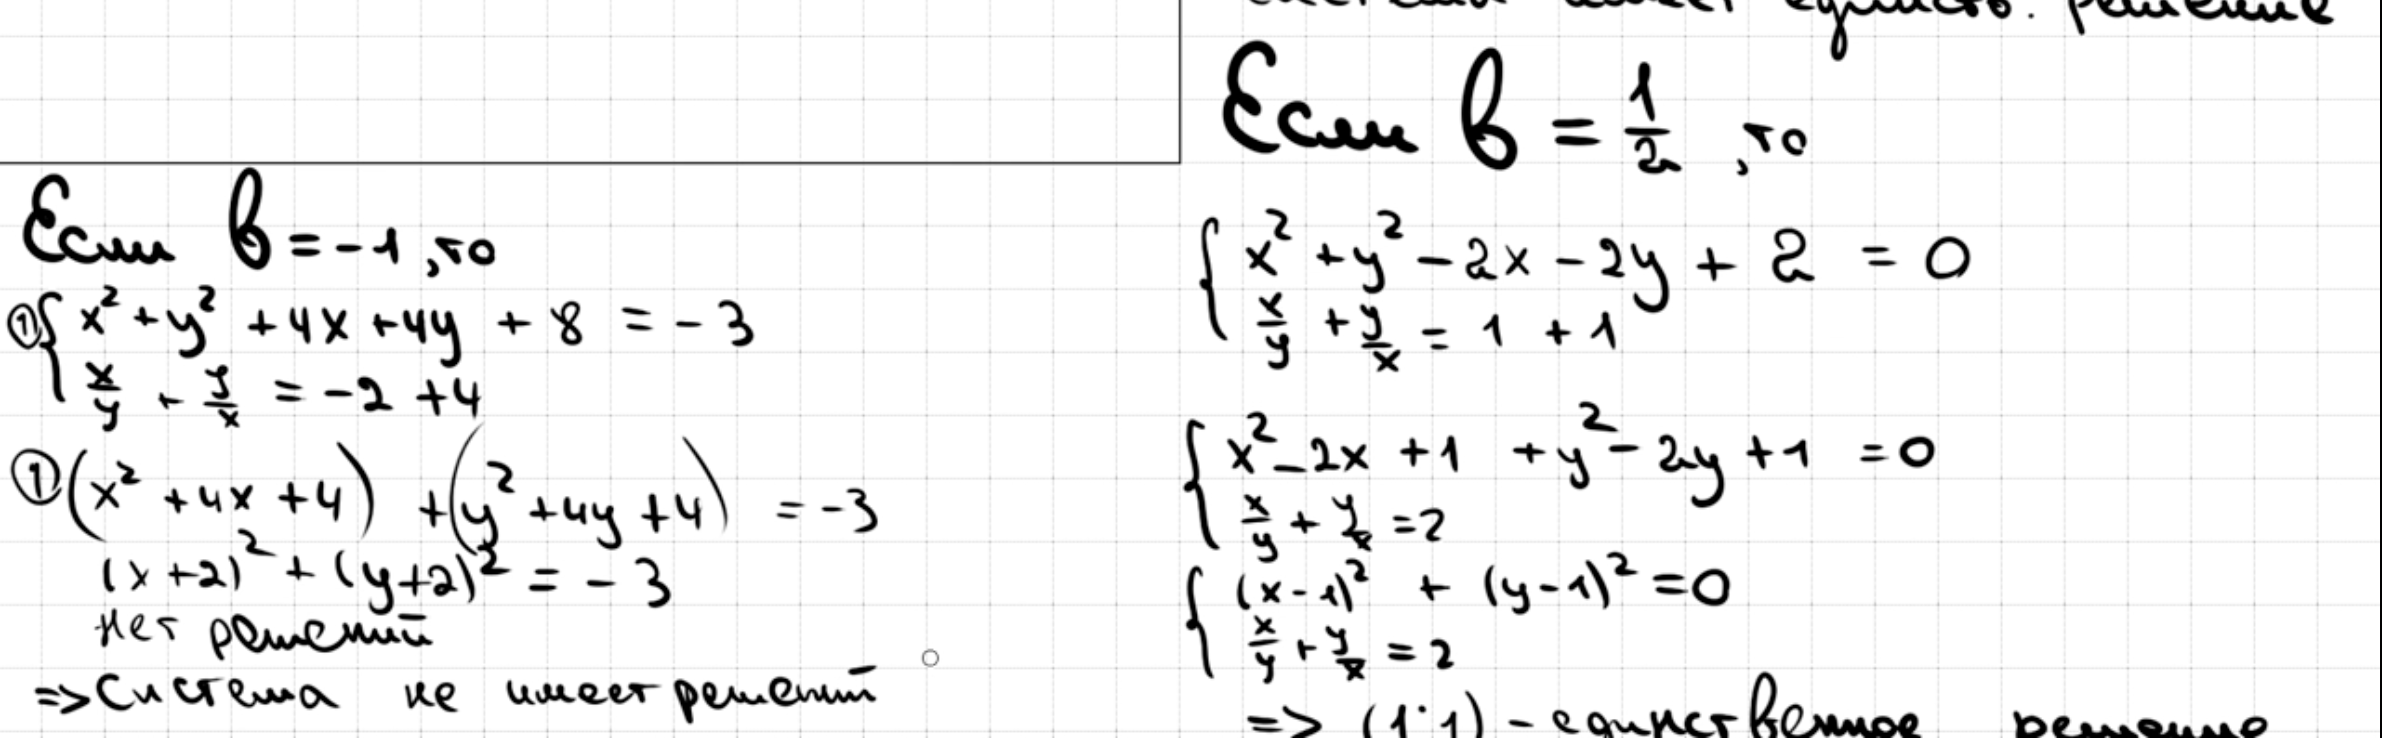 Если b = -1, то
① { x² + y² + 4x + 4y + 8 = -3
x/y + y/x = -2 + 4
① (x² + 4x + 4) + (y² + 4y + 4) = -3
(x+2)² + (y+2)² = -3
нет решений
=> Система не имеет решений
единств. решение
Если b = 1/2, то
{ x² + y² - 2x - 2y + 2 = 0
x/y + y/x = 1 + 1
{ x² - 2x + 1 + y² - 2y + 1 = 0
x/y + y/x = 2
{ (x-1)² + (y-1)² = 0
x/y + y/x = 2
=> (1;1) - единственное решение